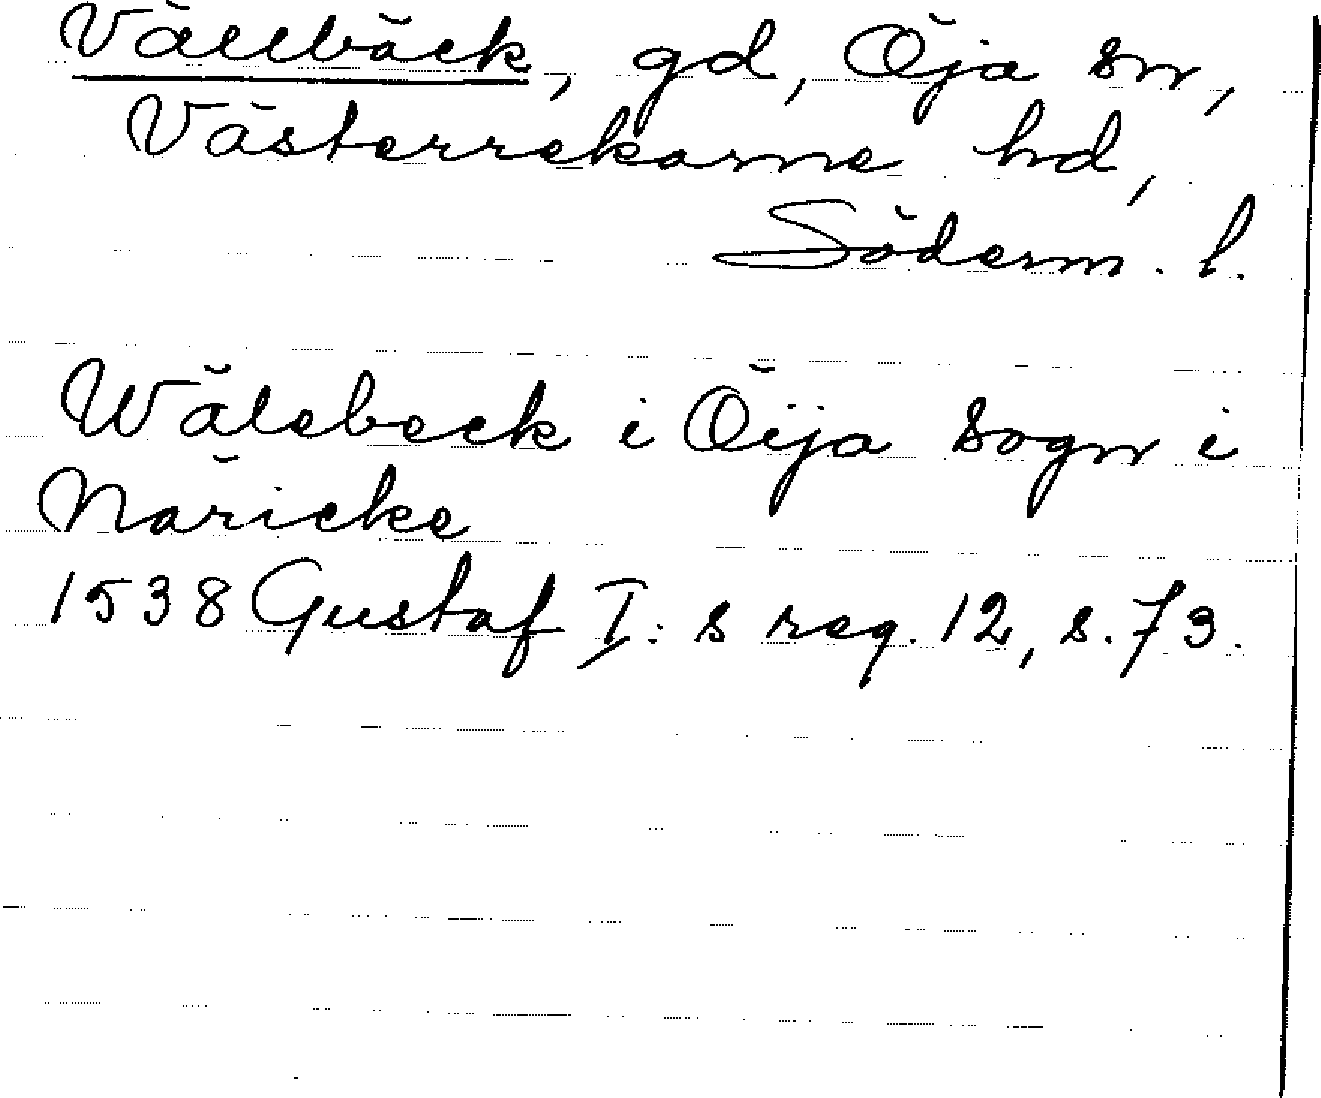 Vällbäck, gd, Öja sn,
Västerrekarne hd,
Söderm. l.
Wälebeck i Öija sogn i
Näricke
1538 Gustaf I: s reg. 12, s. 73.